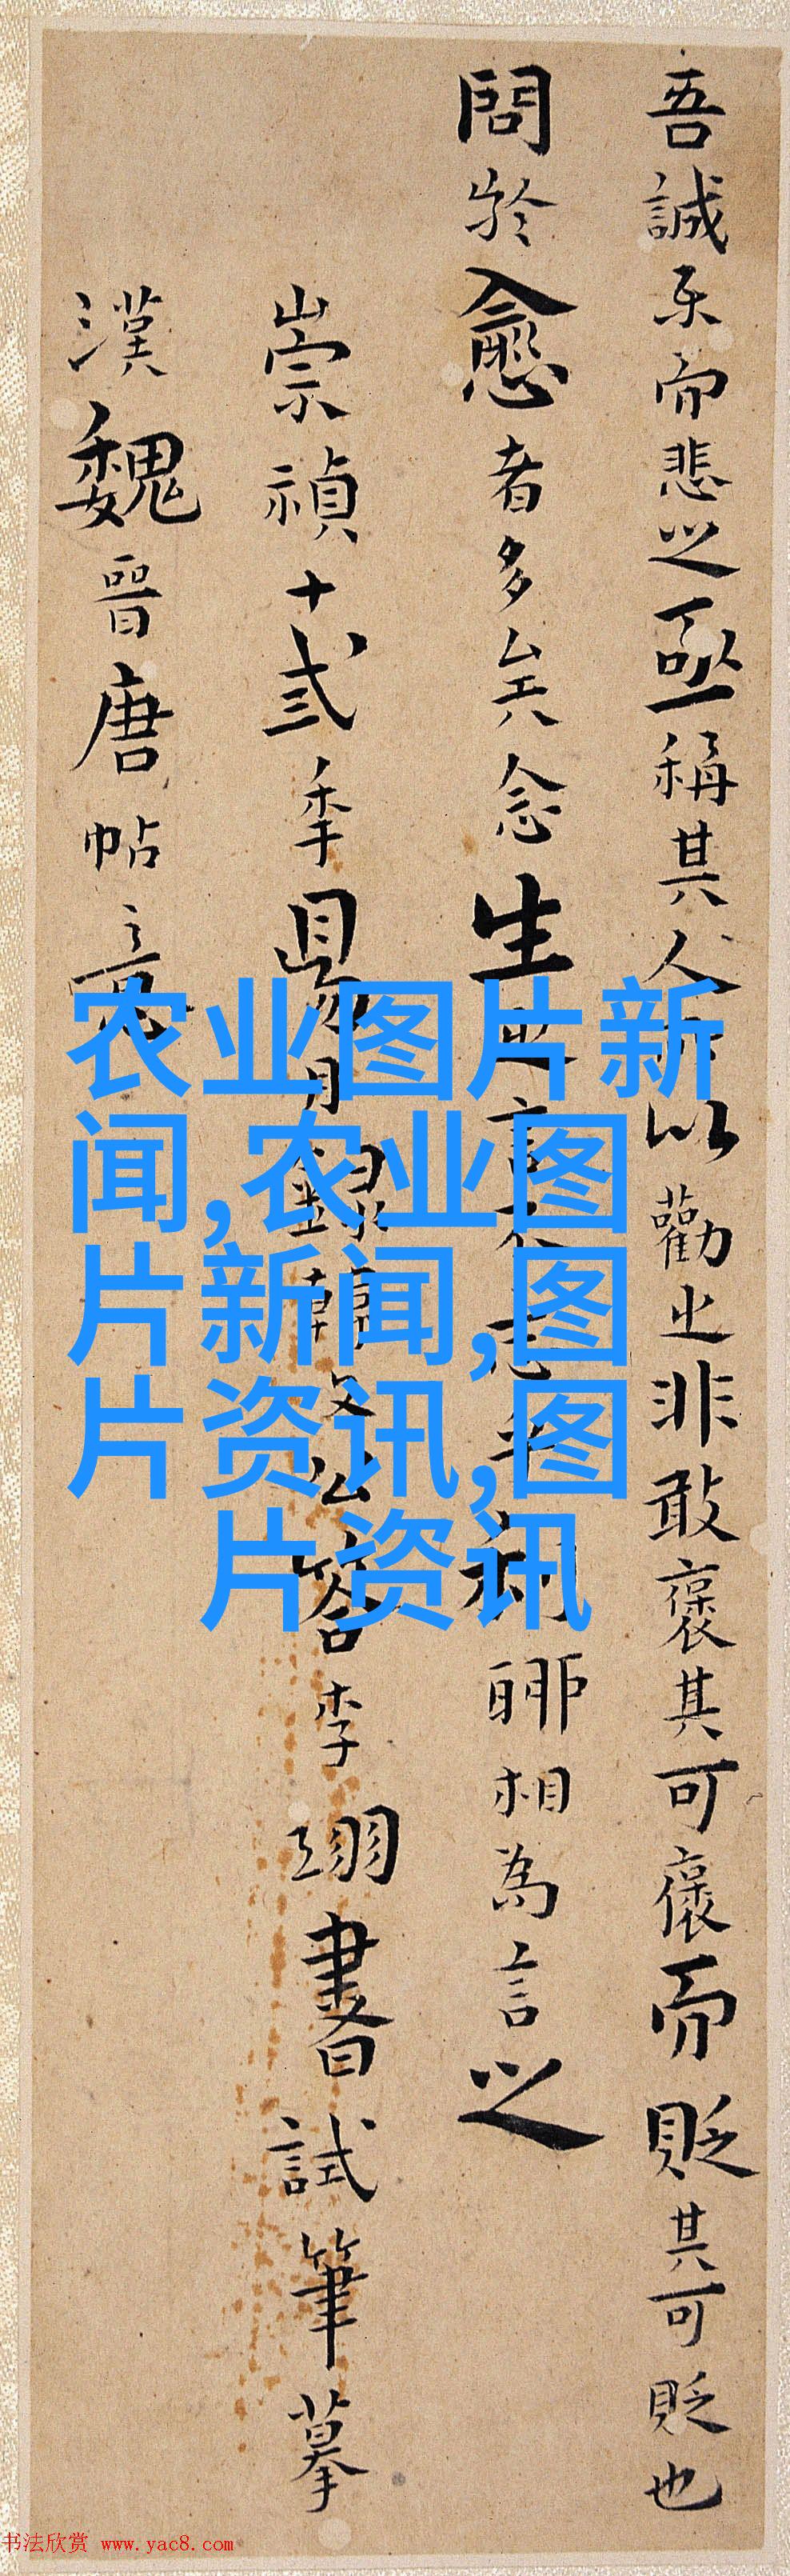 吾誠乐而悲之亟稱其人所以勸之非敢褒其可褒而貶其可貶也
問於愈者多矣念生之言不志乎利聊相為言之
崇禎十弎季昜月錄韓文公答李翊書試筆摹
漢魏晉唐帖意
农业图片新
闻,农业图
片新闻,图
片资讯,图
片资讯
书法欣赏 www.yac8.com